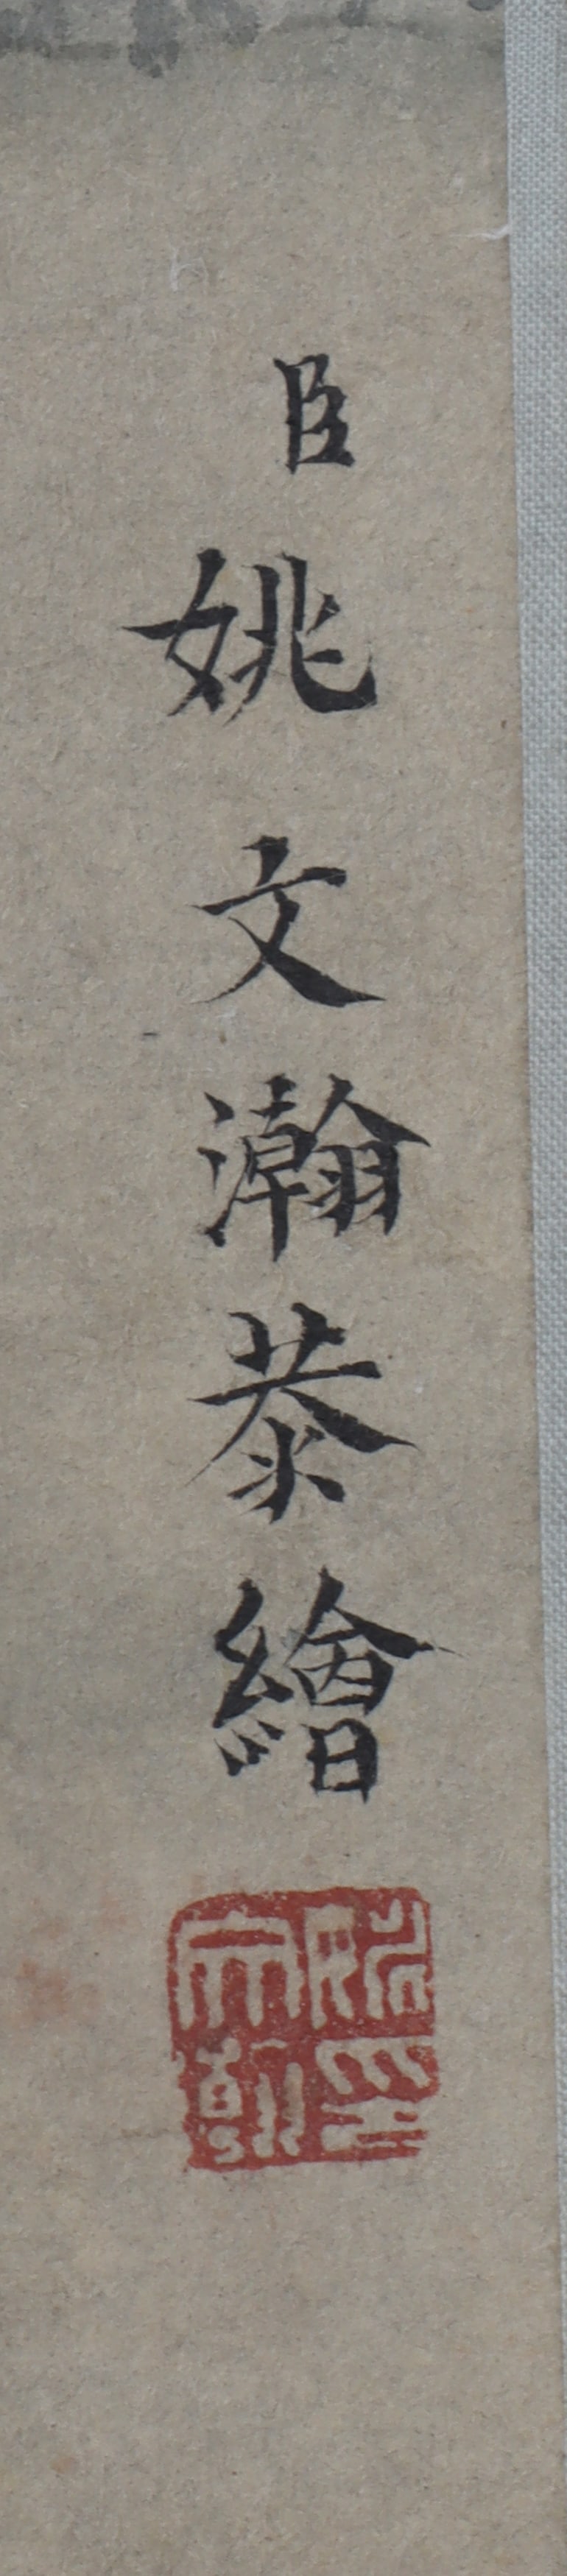 臣姚文瀚恭繪